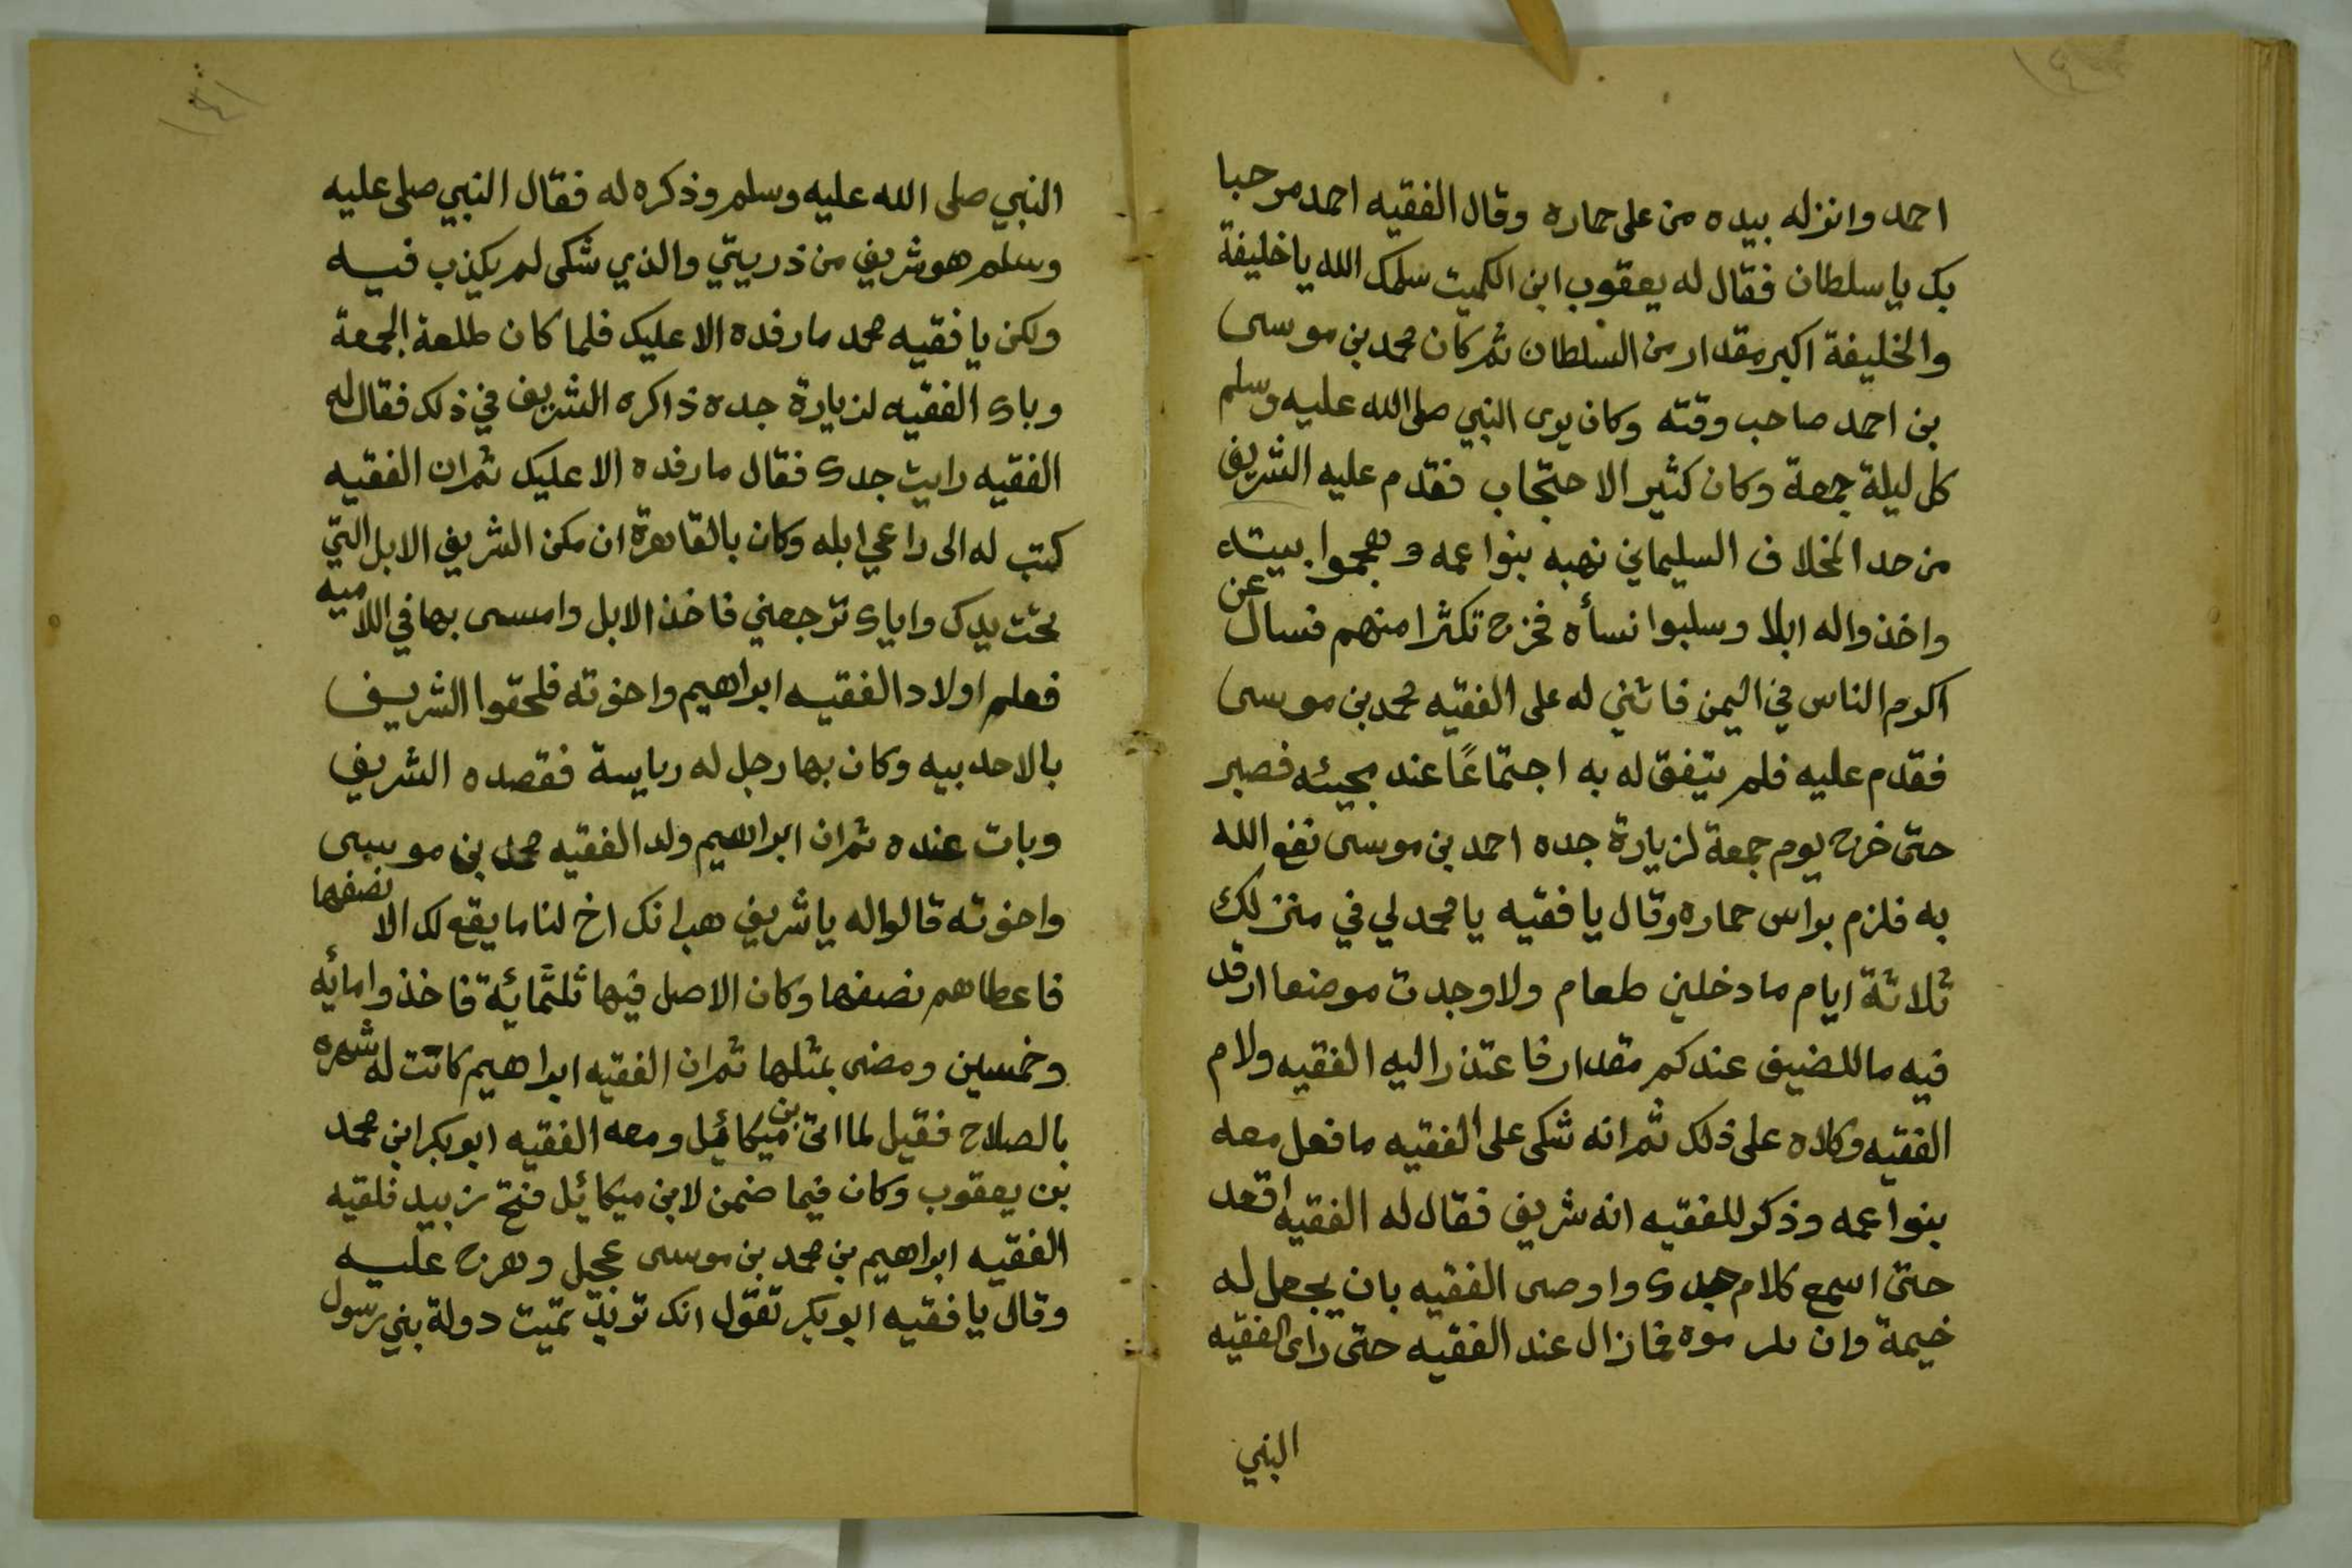 احمد وانزله بيده من على حماره وقال الفقيه احمد مرحبا
بك يا سلطان فقال له يعقوب ابن الكميت سلمك الله يا خليفة
والخليفة اكبر مقدار من السلطان ثم كان محمد بن موسى
بن احمد صاحب وقته وكان يرى النبي صلى الله عليه وسلم
كل ليلة جمعة وكان كثير الاحتجاب فقدم عليه الشريف
من حد المخلاف السليماني نهبه بنوا عمه وهجموا بيته
واخذوا له ابلا وسلبوا نسأه فخرج تكثرا منهم فسال عن
اكرم الناس في اليمن فاثني له على الفقيه محمد بن موسى
فقدم عليه فلم يتفق له به اجتماعًا عند مجيئه فصبر
حتى خرج يوم جمعة لزيارة جده احمد بن موسى نفع الله
به فلزم براس حماره وقال يا فقيه يا محمد لي في منزلك
ثلاثة ايام ما دخلني طعام ولا وجدت موضعا ارقد
فيه ما للضيف عندكم مقدار فاعتذر اليه الفقيه ولام
الفقيه وكلاه على ذلك ثم انه شكى على الفقيه ما فعل معه
بنوا عمه وذكر للفقيه انه شريف فقال له الفقيه اقعد
حتى اسمع كلام جدى واوصى الفقيه بان يجعل له
خيمة وان فما زال عند الفقيه حتى راى الفقيه
النبي
١٤١
النبي صلى الله عليه وسلم وذكره له فقال النبي صلى عليه
وسلم هو شريف من ذريتي والذي شكى لم يكذب فيه
ولكن يا فقيه محمد ما رفده الا عليك فلما كان طلعة الجمعة
وباى الفقيه لزيارة جده ذاكره الشريف في ذلك فقال له
الفقيه رايت جدى فقال ما رفده الا عليك ثم ان الفقيه
كتب له الى راعي ابله وكان بالقاهرة ان مكن الشريف الابل التي
تحت يدك واياى ترجعني فاخذ الابل وامسى بها في اللاميه
فعلم اولاد الفقيه ابراهيم واخوته فلحقوا الشريف
بالاحدبيه وكان بها رجل له رياسة فقصده الشريف
وبات عنده ثم ان ابراهيم ولد الفقيه محمد بن موسى
واخوته قالوا له يا شريف هب انك اخ لنا ما يقع لك الا نصفها
فاعطاهم نصفها وكان الاصل فيها ثلثمائة فاخذوا مائه
وخمسين ومضى بمثلها ثم ان الفقيه ابراهيم كانت له شهره
بالصلاح فقيل لما اتى بن ميكائيل ومعه الفقيه ابو بكر ابن محمد
بن يعقوب وكان فيما ضمن لابن ميكائيل فتح زبيد فلقيه
الفقيه ابراهيم بن محمد بن موسى عجيل وهرج عليه
وقال يا فقيه ابو بكر تقول انك تريد تميت دولة بني رسول